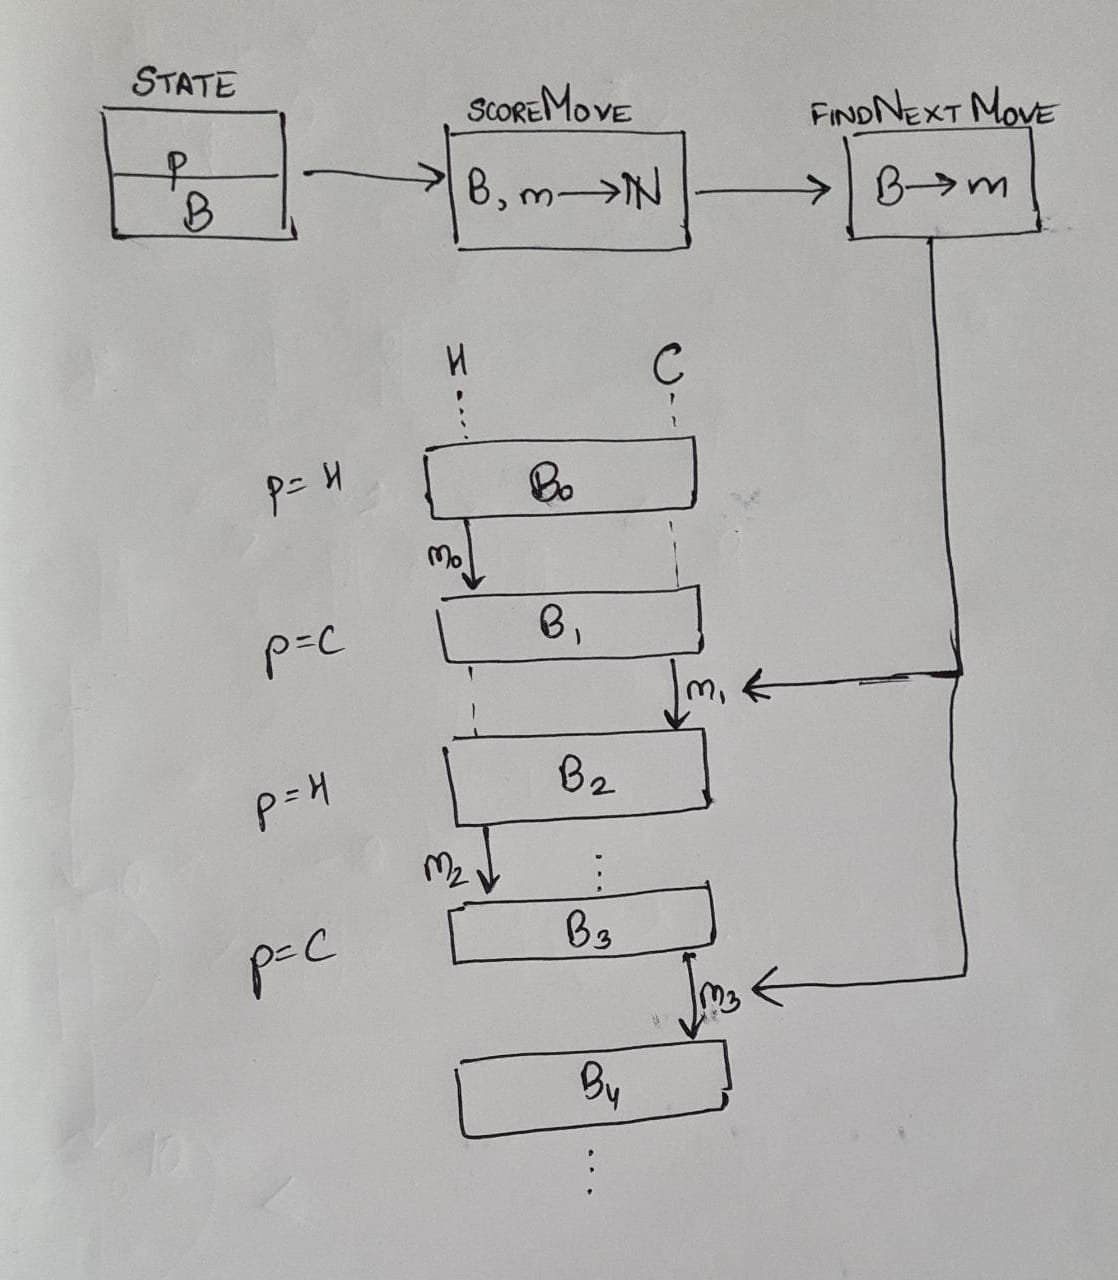 STATE
SCOREMOVE
FINDNEXTMOVE
P
B
B, m→ℕ
B→m
H
C
P=H
B₀
m₀
P=C
B₁
m₁
P=H
B₂
m₂
⋮
P=C
B₃
m₃
B₄
⋮